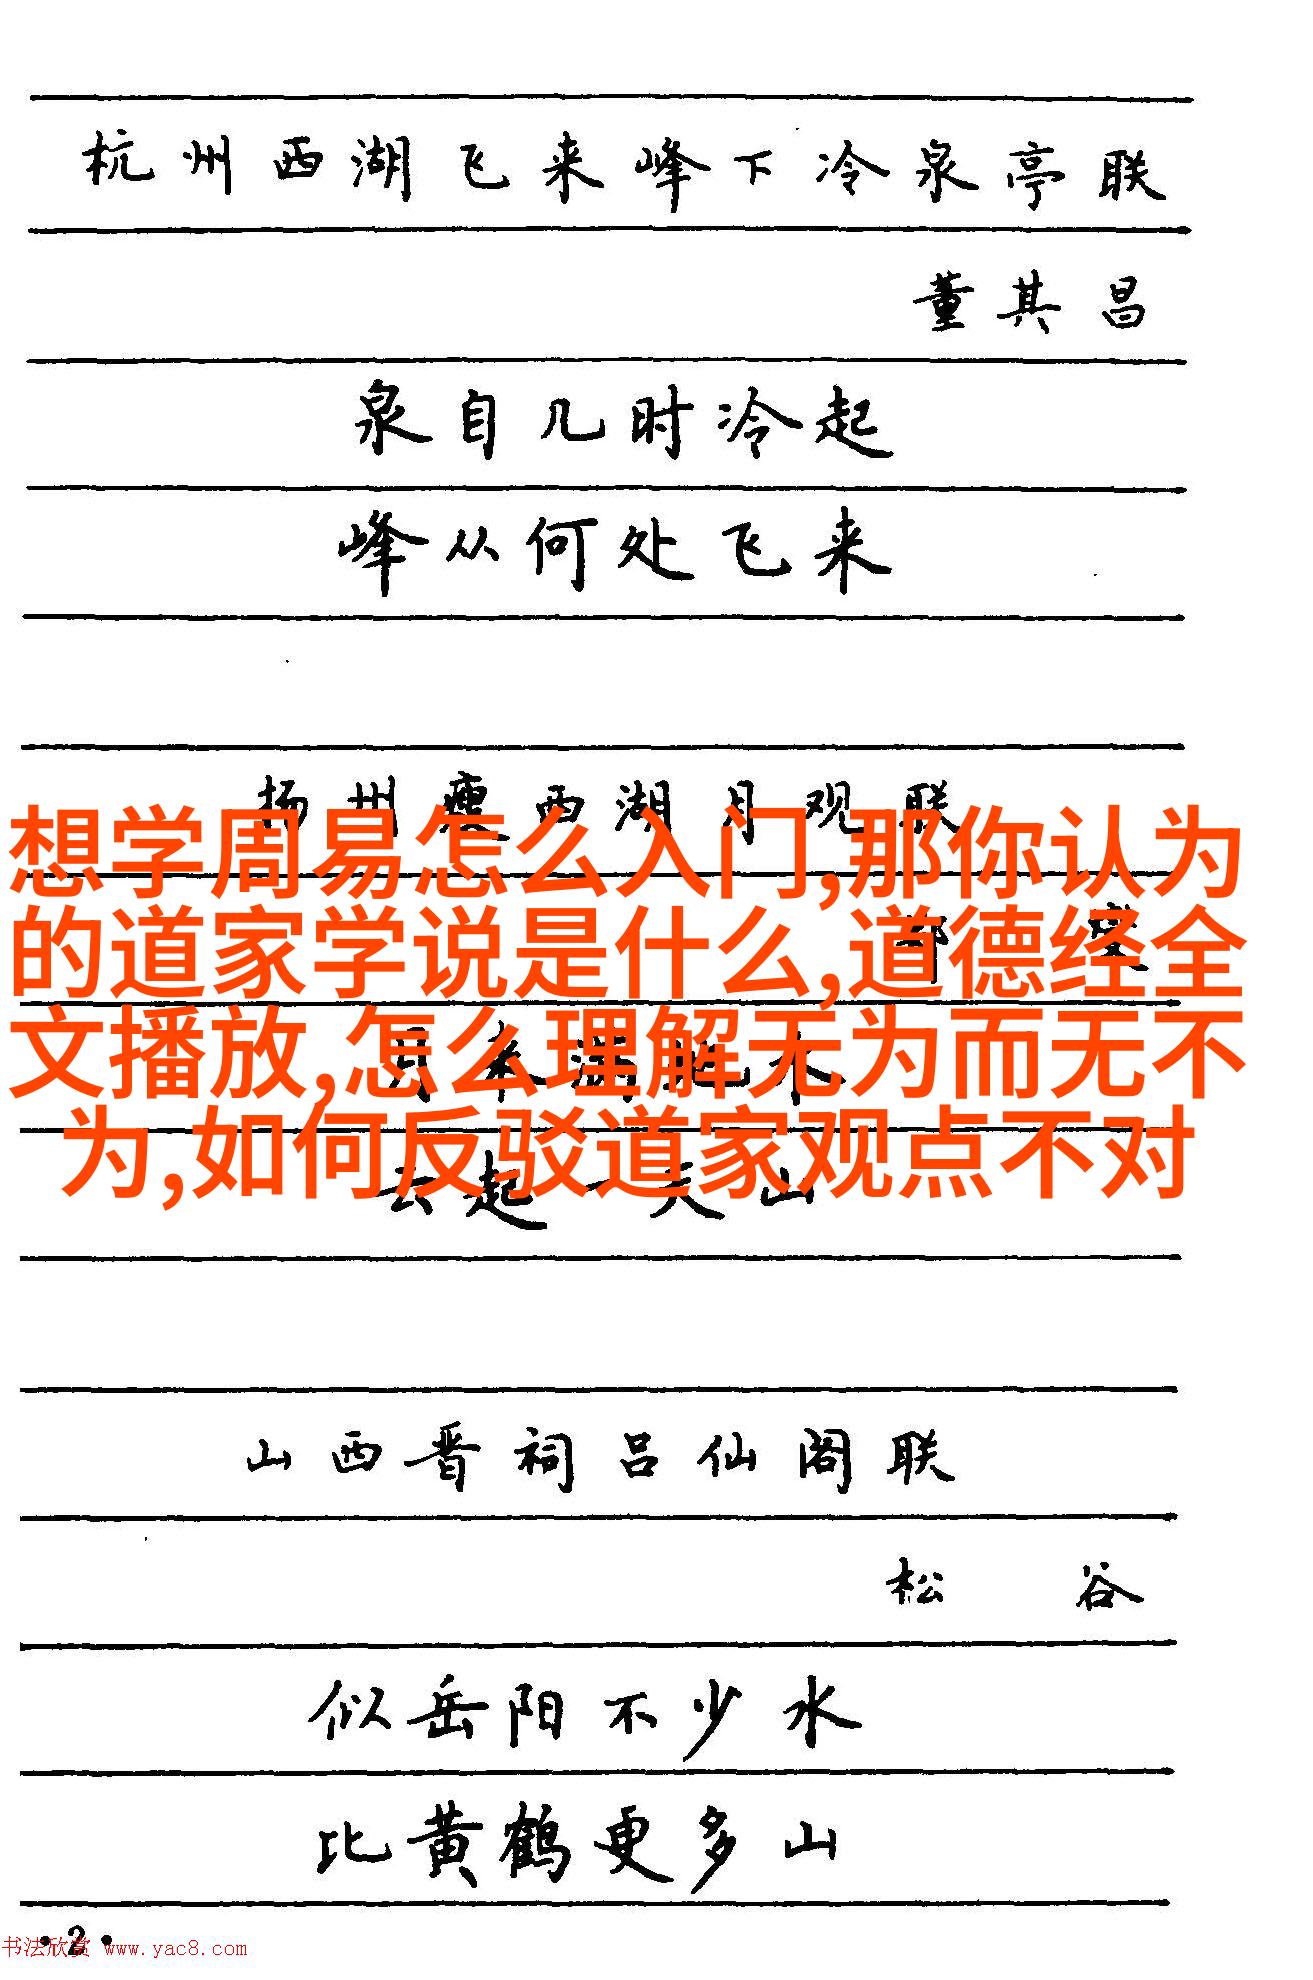 杭州西湖飞来峰下冷泉亭联
董其昌
泉自几时冷起
峰从何处飞来
扬州瘦西湖月观联
想学周易怎么入门,那你认为
郑燮
的道家学说是什么,道德经全
月来满地水
文播放,怎么理解无为而无不
为,如何反驳道家观点不对
云起一天山
山西晋祠吕仙阁联
松谷
似岳阳不少水
比黄鹤更多山
·2·
书法欣赏 www.yac8.com